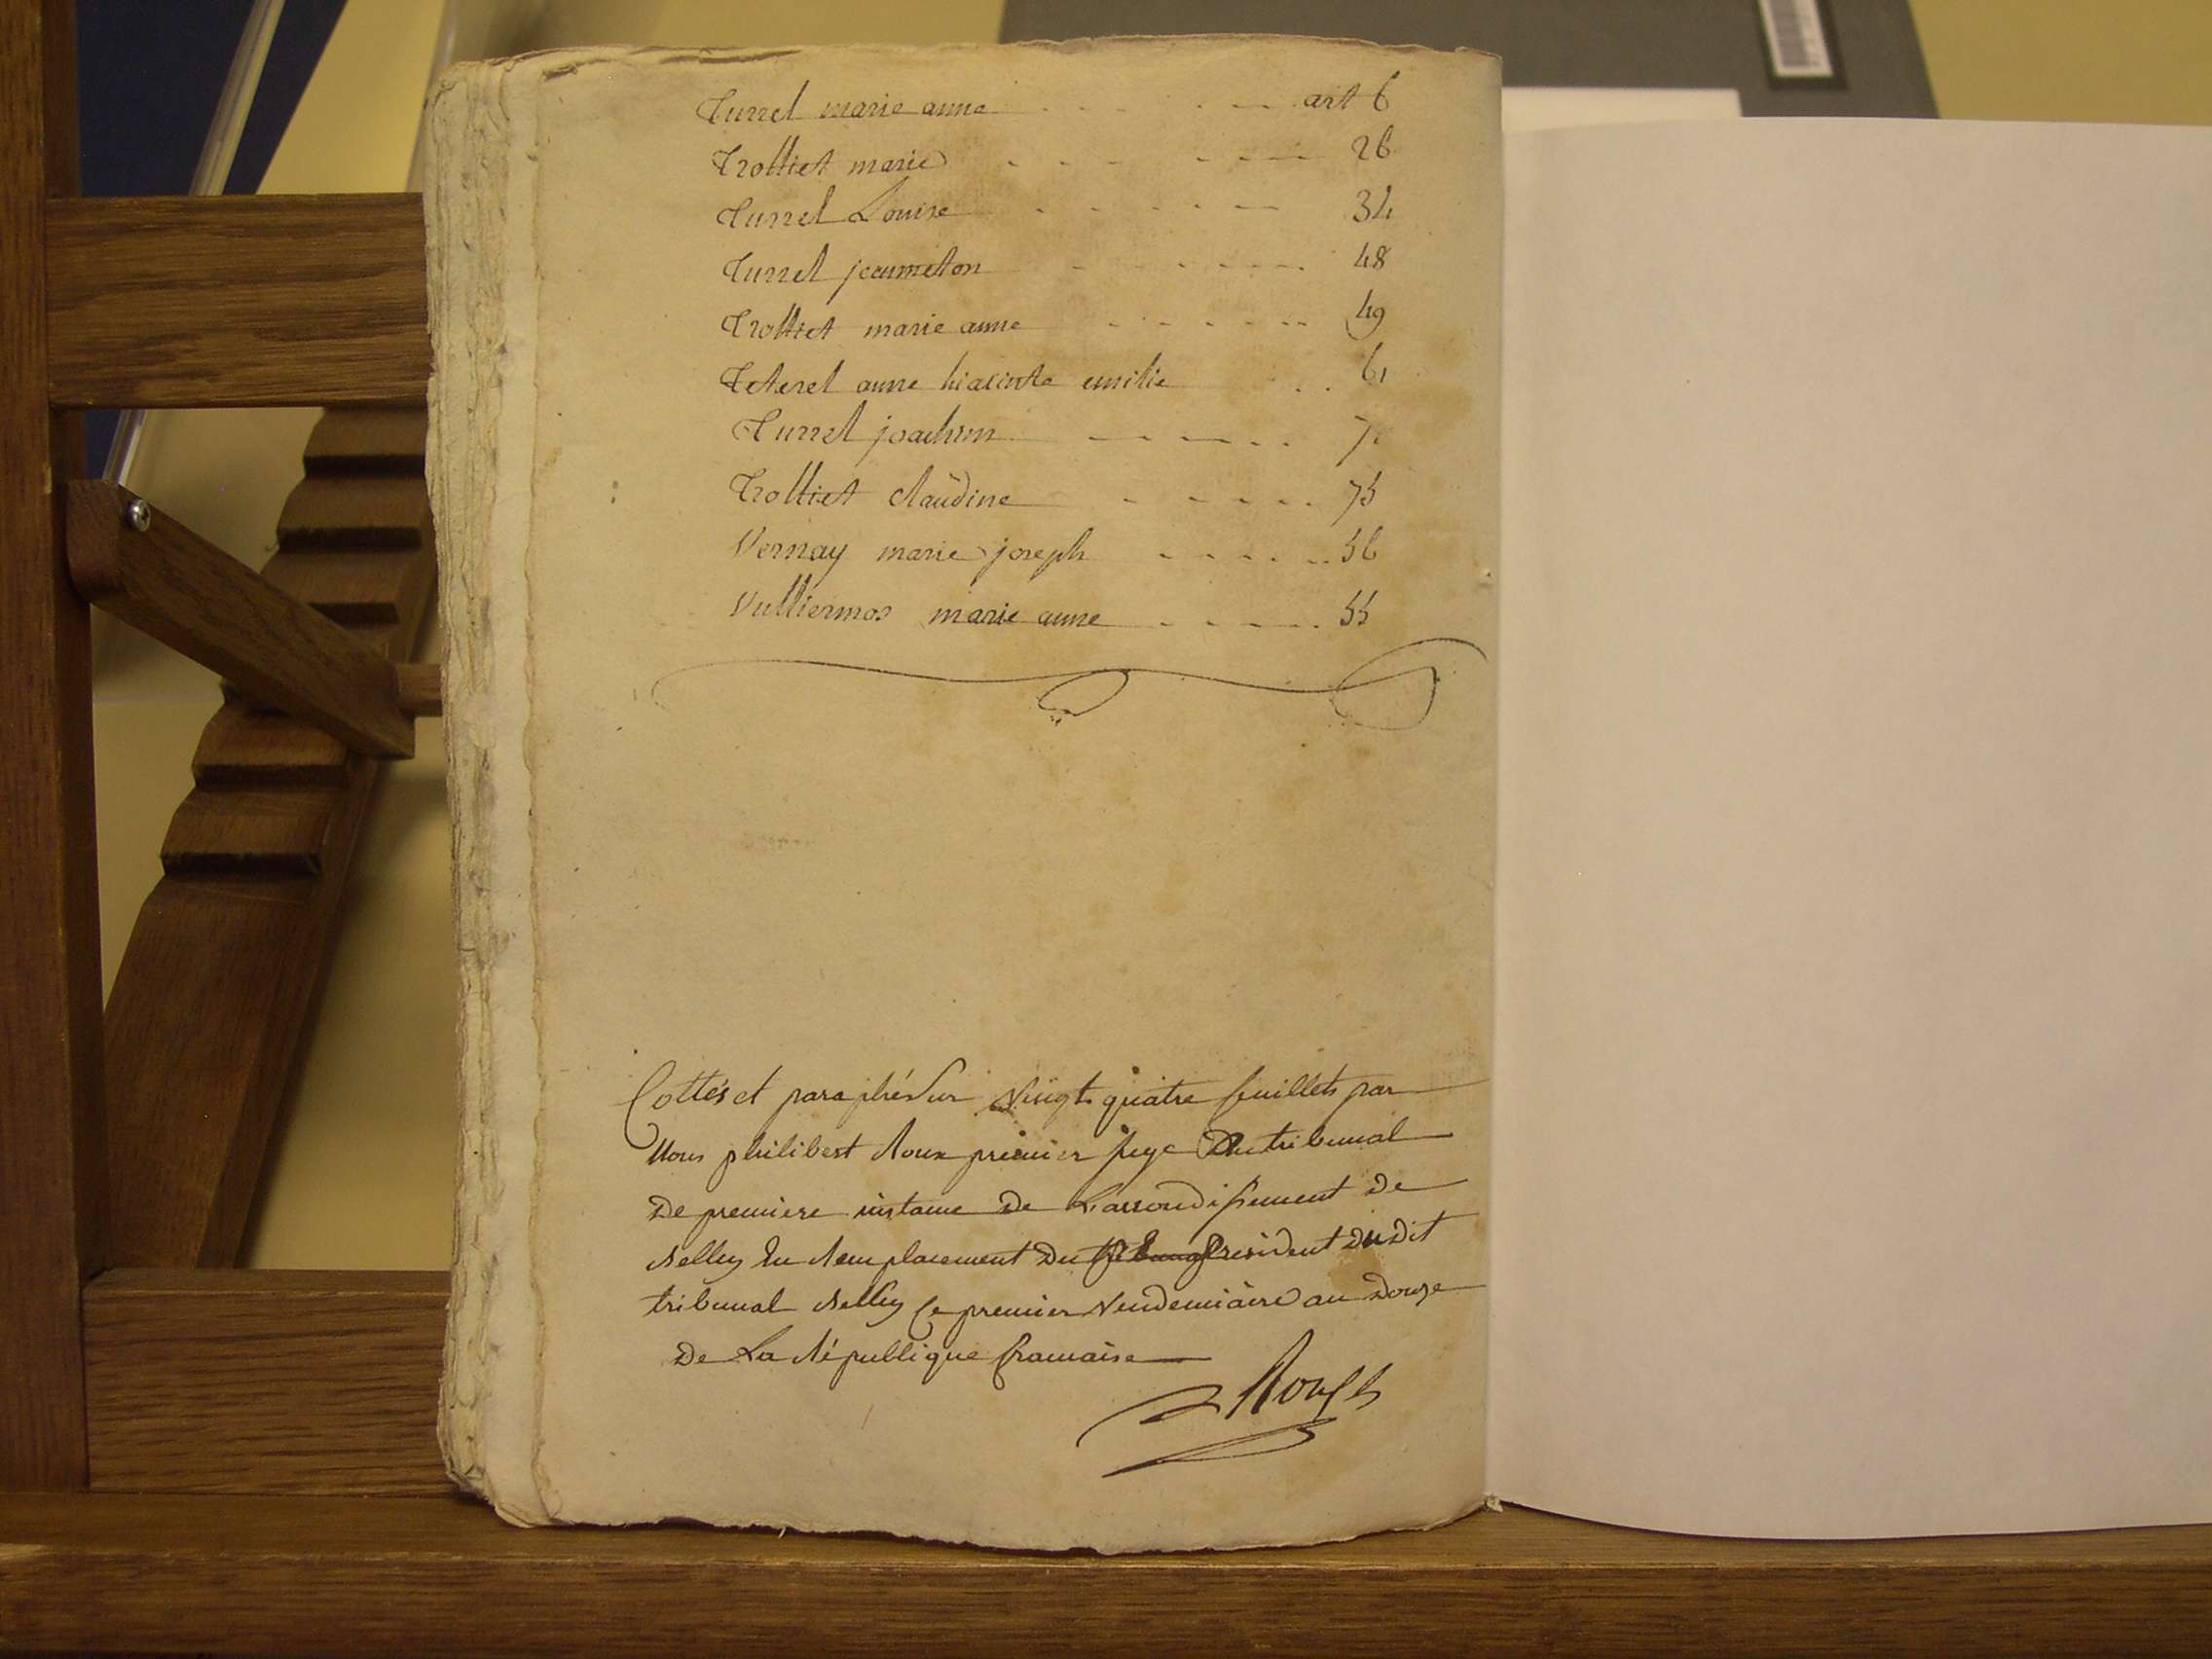 Turrel marie anne - - - - - art 6
Trolliet marie - - - - - - 26
Turrel Louise - - - - - - 34
Turrel jeanneton - - - - - - 48
Trolliet marie anne - - - - - - 49
Teterel anne hiacinte emilie . . 61
Turrel joachim - - - - - .
Trolliet claüdine - - - - - . 75
Vernay marie joseph - - - - - 56
Vulliermos marie anne - - - - - . 55
Cottés et paraphés Sur vingt quatre feuillets par
Nous philibert Roux premier juge Du tribunal
De premiere instance De L'arrondissement De
Belley En Remplacement Du President DuDit
tribunal Belley Ce premier Vendemiaire an Douze
De La République francaise